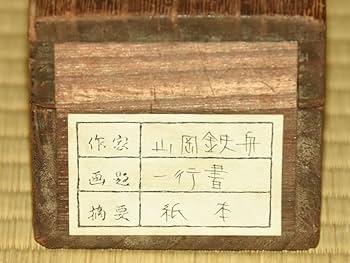 作家 山岡鉄舟
画題 一行書
摘要 紙本